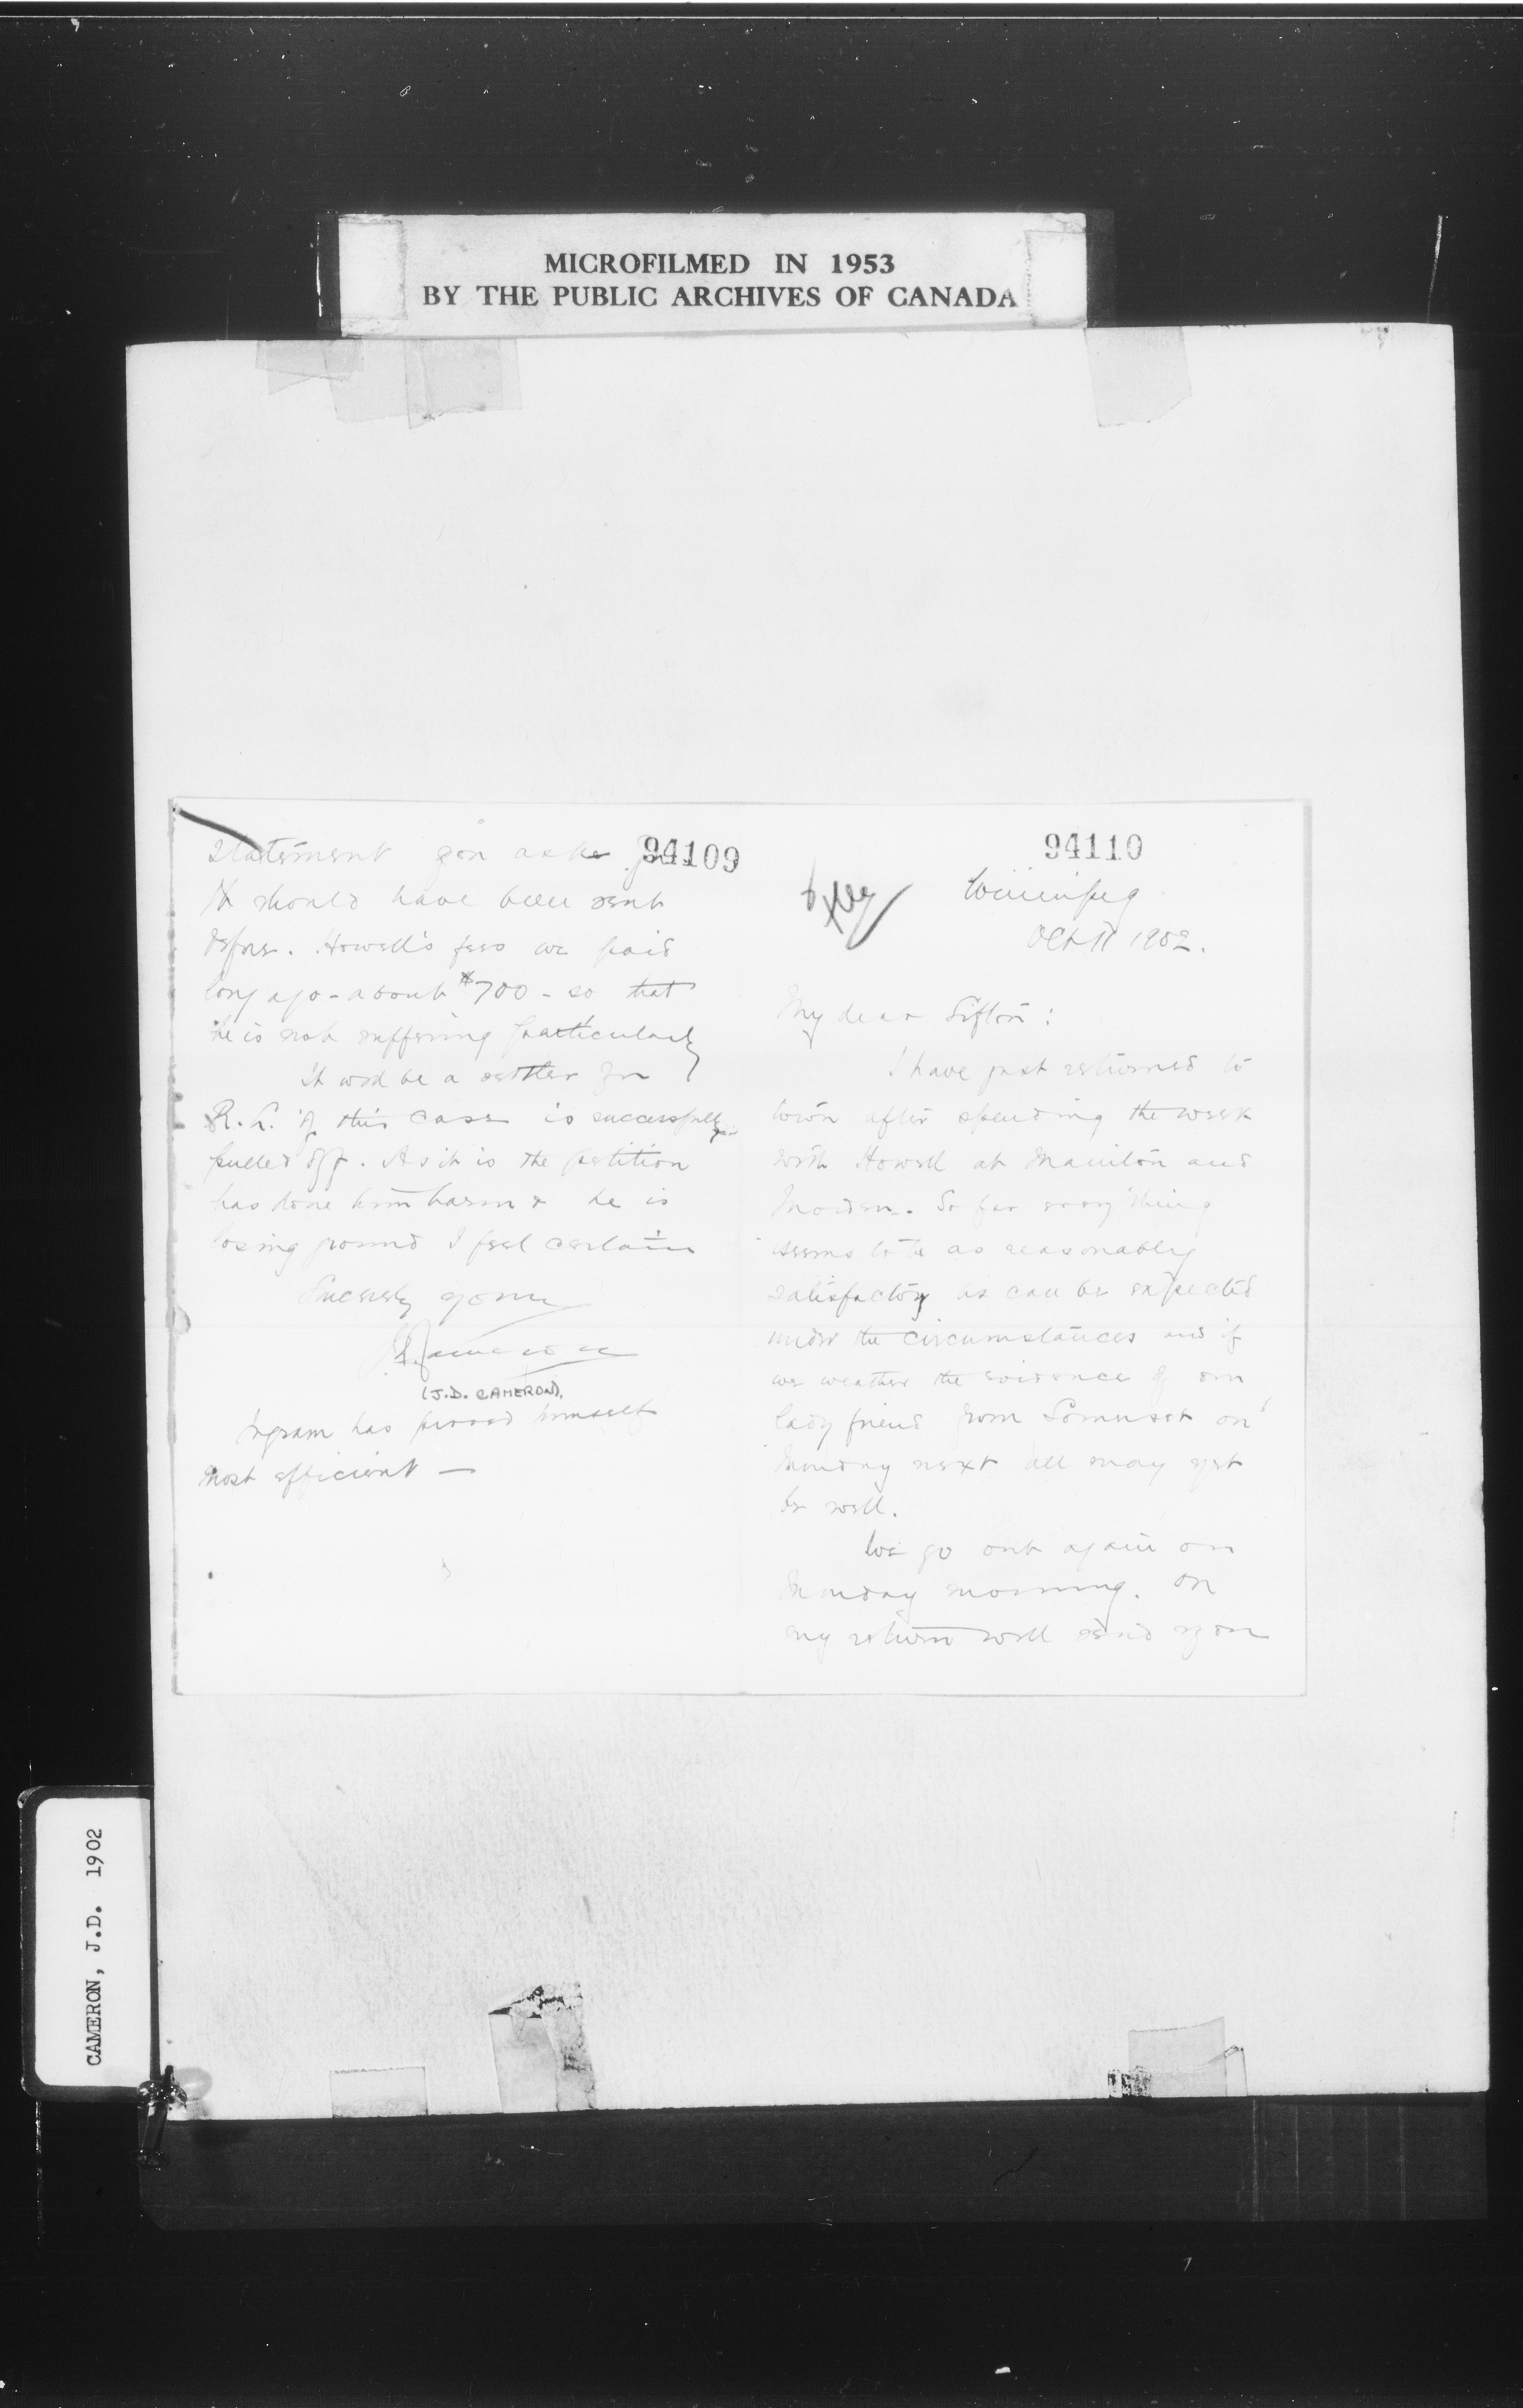 MICROFILMED IN 1953
BY THE PUBLIC ARCHIVES OF CANADA
94109
Statement you asked for
It should have been sent
before. Howell's fees we paid
long ago - about $700 - so that
he is not suffering particularly
It wod be a settler for
R. L. if this case is successfully
pulled off. As it is the petition
has done him harm & he is
losing ground I feel certain
Sincerely yours
J.D. Cameron
(J.D. CAMERON).
Ingram has proved himself
most efficient —
94110
Winnipeg
Oct 11 1902.
My dear Sifton:
I have just returned to
town after spending the week
with Howell at Manitou and
Morden. So far everything
seems to be as reasonably
satisfactory as can be expected
under the circumstances and if
we weather the evidence of our
lady friend from Somerset on
Monday next all may yet
be well.
We go out again on
Monday morning. On
my return will send you
CAMERON, J.D. 1902